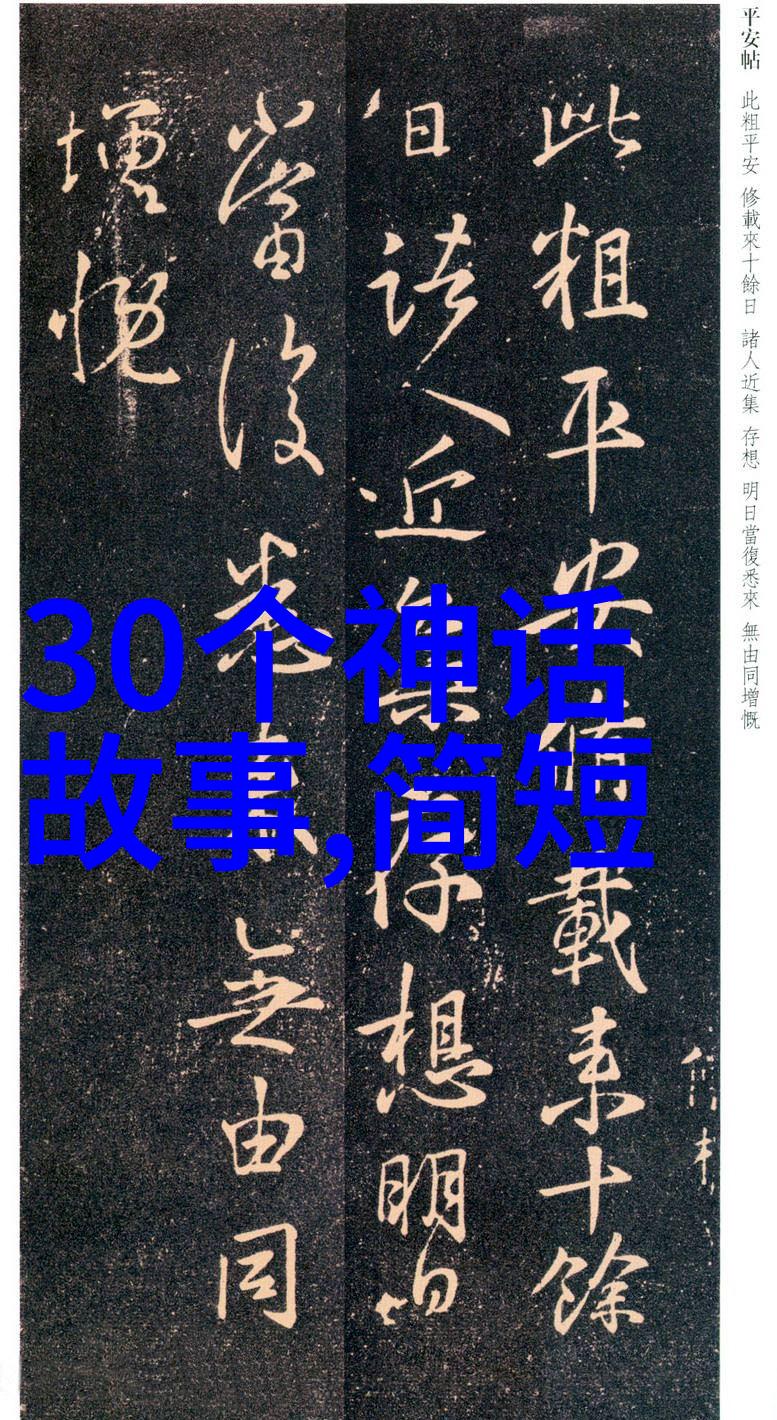 平安帖 此粗平安 修載來十餘日 諸人近集 存想 明日當復悉來 無由同增慨
此粗平安脩載来十餘
日諸人近集存想明日
當復悉来無由同
增慨
30个神话
故事,简短